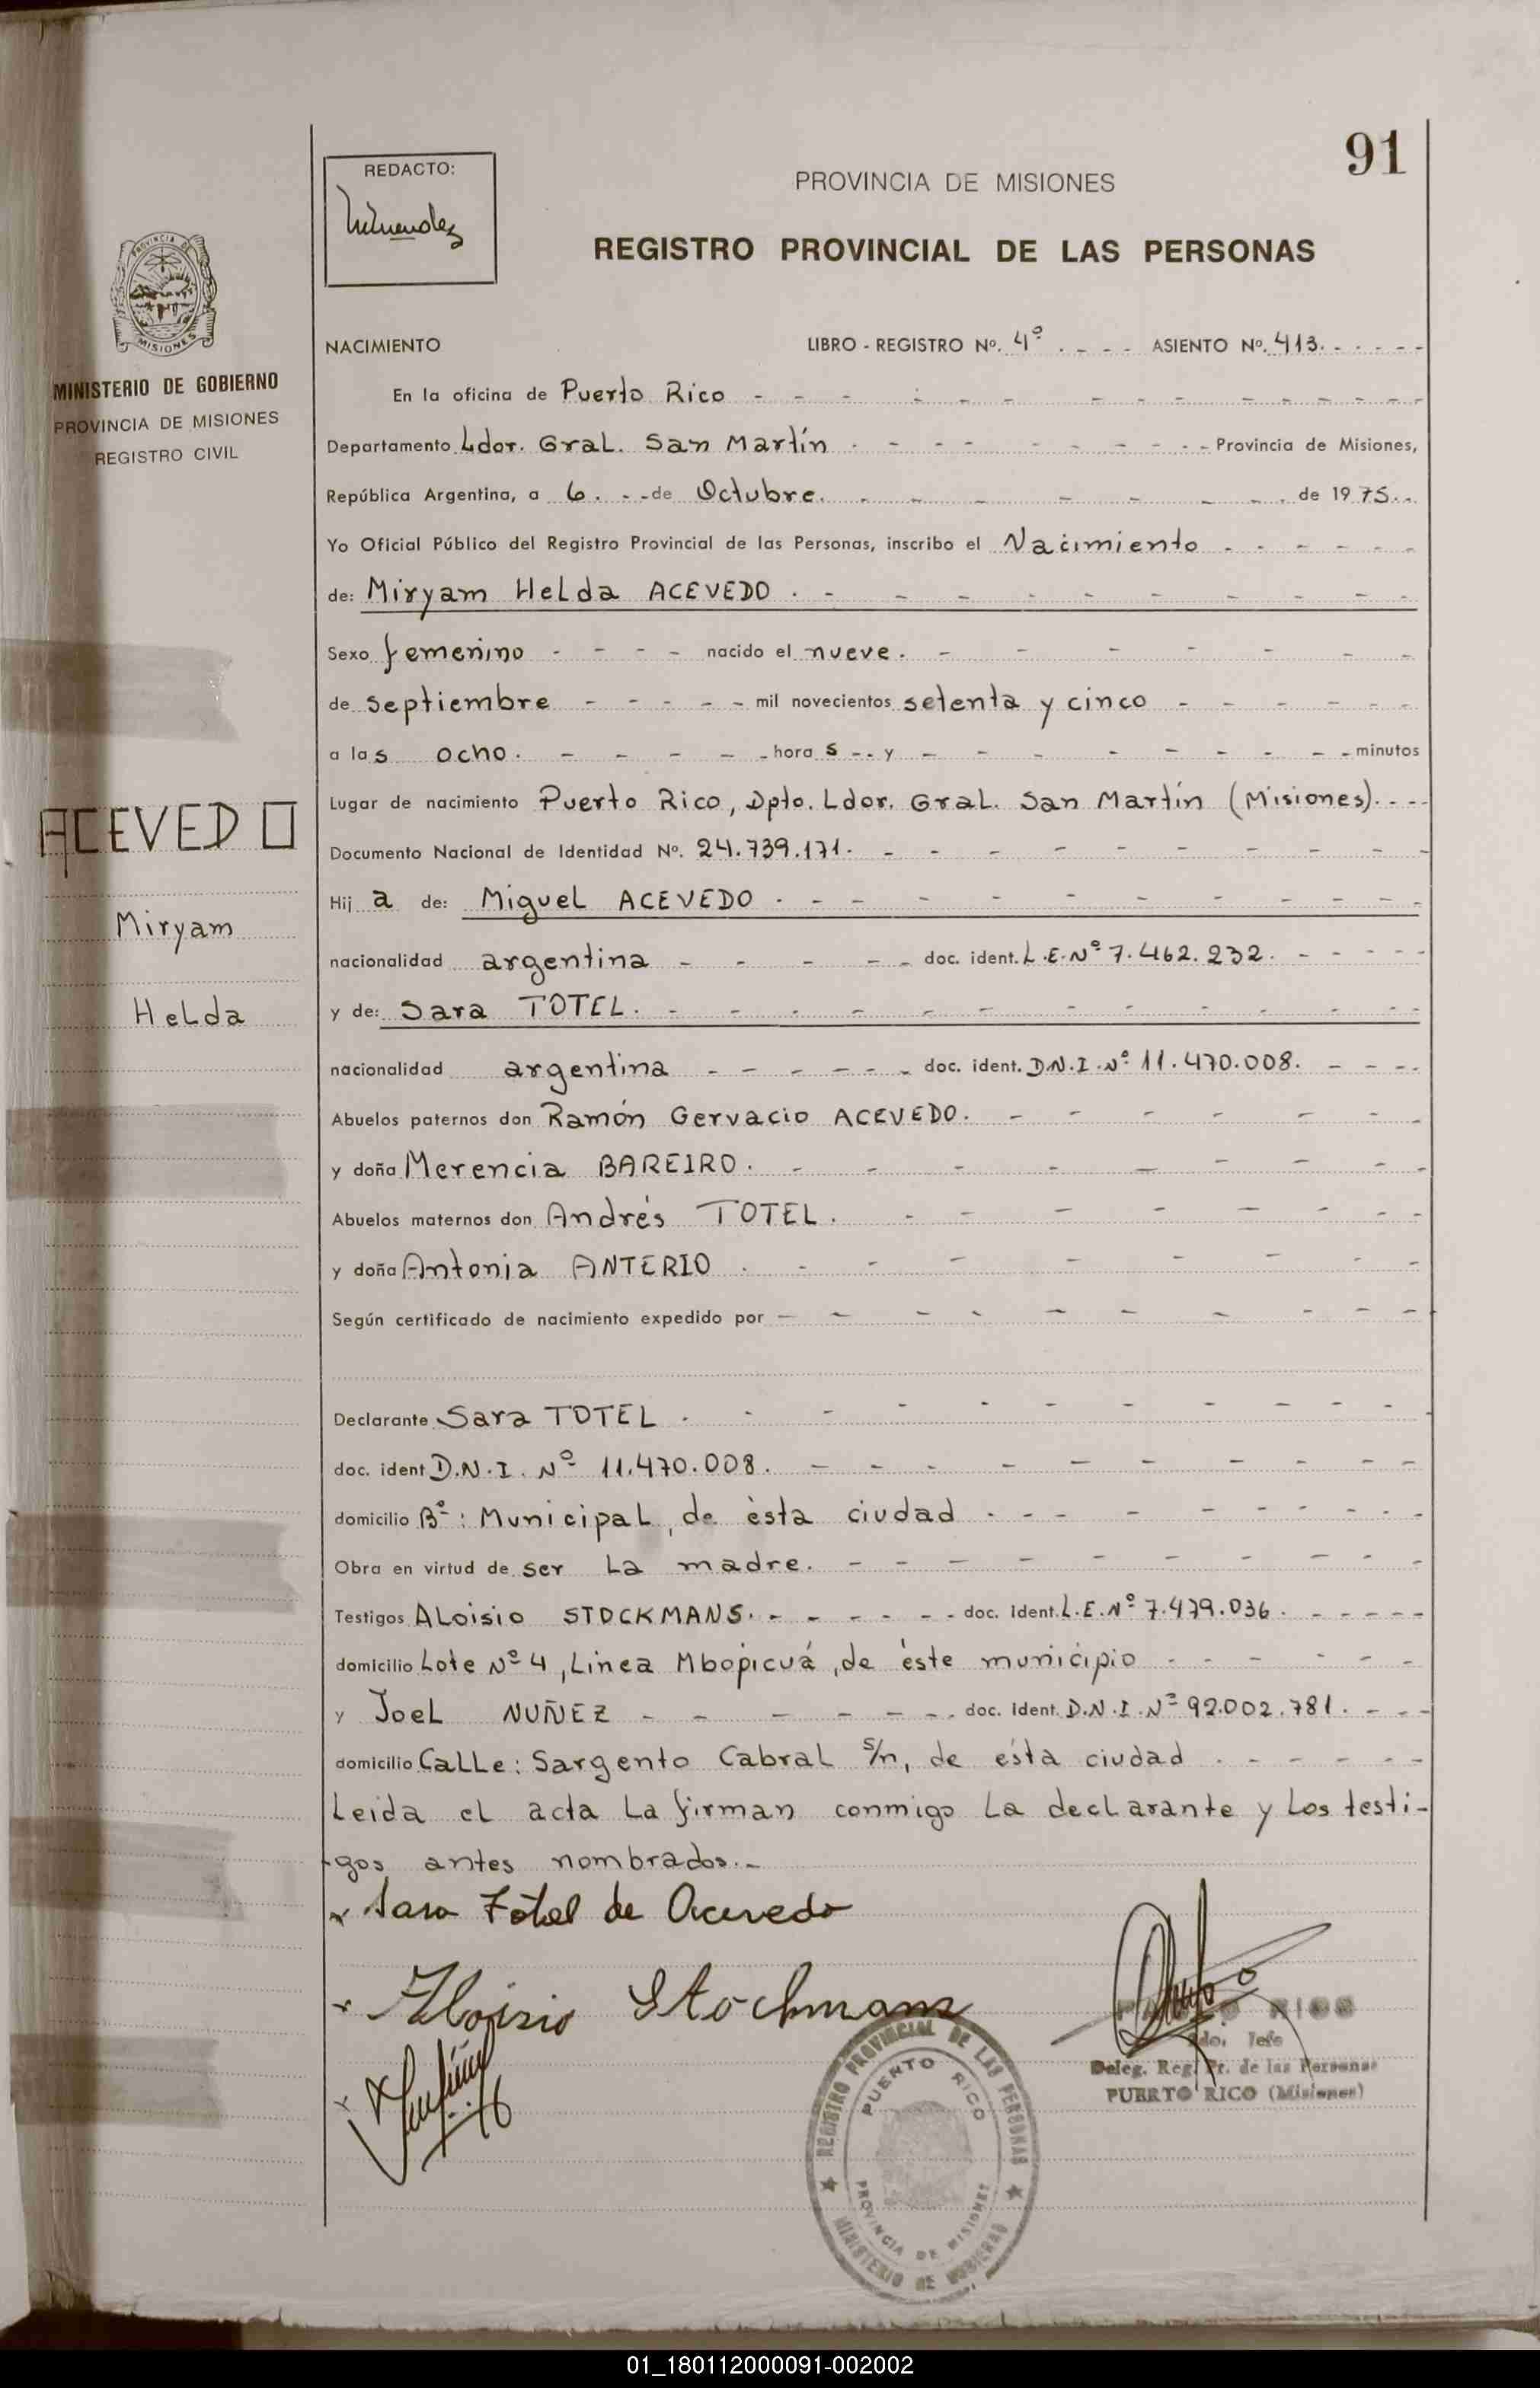 91
REDACTO:
PROVINCIA DE MISIONES
REGISTRO PROVINCIAL DE LAS PERSONAS
PROVINCIA DE
MISIONES
MINISTERIO DE GOBIERNO
PROVINCIA DE MISIONES
REGISTRO CIVIL
ACEVEDO
Miryam
Helda
NACIMIENTO LIBRO - REGISTRO Nº. 4º . - - - ASIENTO Nº. 413. - - - - -
En la oficina de Puerto Rico - - - - - - - - - - - -
Departamento Ldor. Gral. San Martín . - - - - - - - - - Provincia de Misiones,
República Argentina, a 6. - - de Octubre. - - - - - - - de 1975. .
Yo Oficial Público del Registro Provincial de las Personas, inscribo el Nacimiento - - - - - -
de: Miryam Helda ACEVEDO . - - - - - - - - - -
Sexo femenino - - - - nacido el nueve. - - - - - - -
de septiembre - - - - - mil novecientos setenta y cinco - - - - - -
a las ocho. - - - - - hora s - - y - - - - - - - - - minutos
Lugar de nacimiento Puerto Rico, Dpto. Ldor. Gral. San Martín (Misiones). - - -
Documento Nacional de Identidad Nº. 24.739.171. - - - - - - - - - -
Hij a de: Miguel ACEVEDO . - - - - - - - - - -
nacionalidad argentina - - - - - doc. ident. L.E.Nº 7.462.232. - - - - -
y de: Sara TOTEL. - - - - - - - - - - - -
nacionalidad argentina - - - - - - doc. ident. D.N.I.Nº 11.470.008. - - - -
Abuelos paternos don Ramón Gervacio ACEVEDO. - - - - - - -
y doña Merencia BAREIRO. - - - - - - - - -
Abuelos maternos don Andrés TOTEL. - - - - - - - -
y doña Antonia ANTERIO . - - - - - - - -
Según certificado de nacimiento expedido por - - - - - - - - - - -
Declarante Sara TOTEL . - - - - - - - - - -
doc. ident D.N.I. Nº 11.470.008. - - - - - - - - - -
domicilio Bº: Municipal, de ésta ciudad - - - - - - - - -
Obra en virtud de ser la madre. - - - - - - - - - -
Testigos Aloisio STOCKMANS. - - - - - - doc. Ident. L.E.Nº 7.479.036. - - - - -
domicilio Lote Nº 4, Linea Mbopicuá, de éste municipio - - - - - -
y Joel NUÑEZ - - - - - - - doc. Ident. D.N.I.Nº 92.002.781. - - -
domicilio Calle: Sargento Cabral s/n, de ésta ciudad . - - - - -
Leida el acta la firman conmigo la declarante y los testi-
-gos antes nombrados.-
x Sara Totel de Acevedo
x Aloisio Stockmans
RICO
Jefe
Deleg. Reg. Pr. de las Personas
PUERTO RICO (Misiones)
REGISTRO PROVINCIAL DE LAS PERSONAS
PUERTO RICO
PROVINCIA DE MISIONES
MINISTERIO DE GOBIERNO
01_180112000091-002002